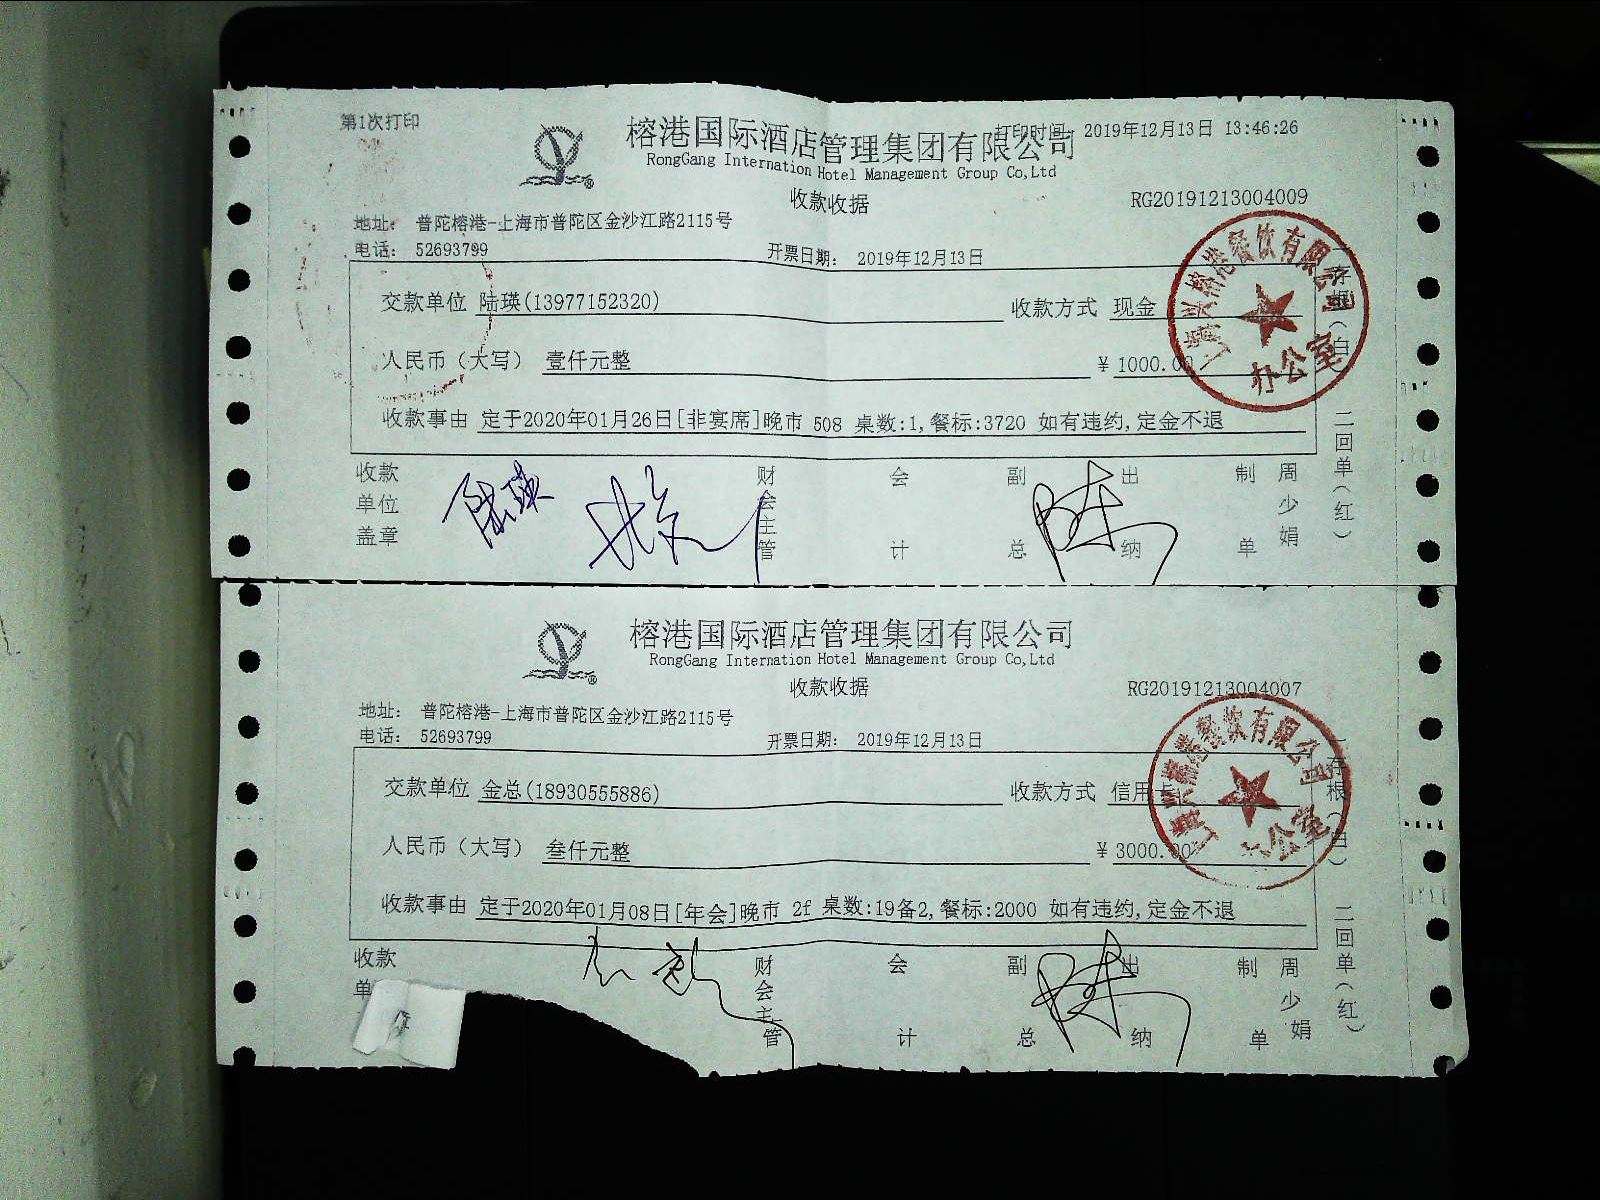 第1次打印
打印时间: 2019年12月13日 13:46:26
榕港国际酒店管理集团有限公司
RongGang Internation Hotel Management Group Co,Ltd
收款收据
RG20191213004009
地址: 普陀榕港-上海市普陀区金沙江路2115号
电话: 52693799
开票日期: 2019年12月13日
交款单位 陆瑛(13977152320) 收款方式 现金
人民币（大写） 壹仟元整 ￥1000.00
收款事由 定于2020年01月26日[非宴席]晚市 508 桌数:1,餐标:3720 如有违约,定金不退
一存根(白) 二回单(红)
餐饮有限公司
办公室
收款单位盖章 陆瑛 财会主管 会计 副总 出纳 制单 周少娟
榕港国际酒店管理集团有限公司
RongGang Internation Hotel Management Group Co,Ltd
收款收据
RG20191213004007
地址: 普陀榕港-上海市普陀区金沙江路2115号
电话: 52693799
开票日期: 2019年12月13日
交款单位 金总(18930555886) 收款方式 信用卡
人民币（大写） 叁仟元整 ￥3000.00
收款事由 定于2020年01月08日[年会]晚市 2f 桌数:19备2,餐标:2000 如有违约,定金不退
一存根(白) 二回单(红)
餐饮有限公司
办公室
收款单 财会主管 会计 副总 出纳 制单 周少娟